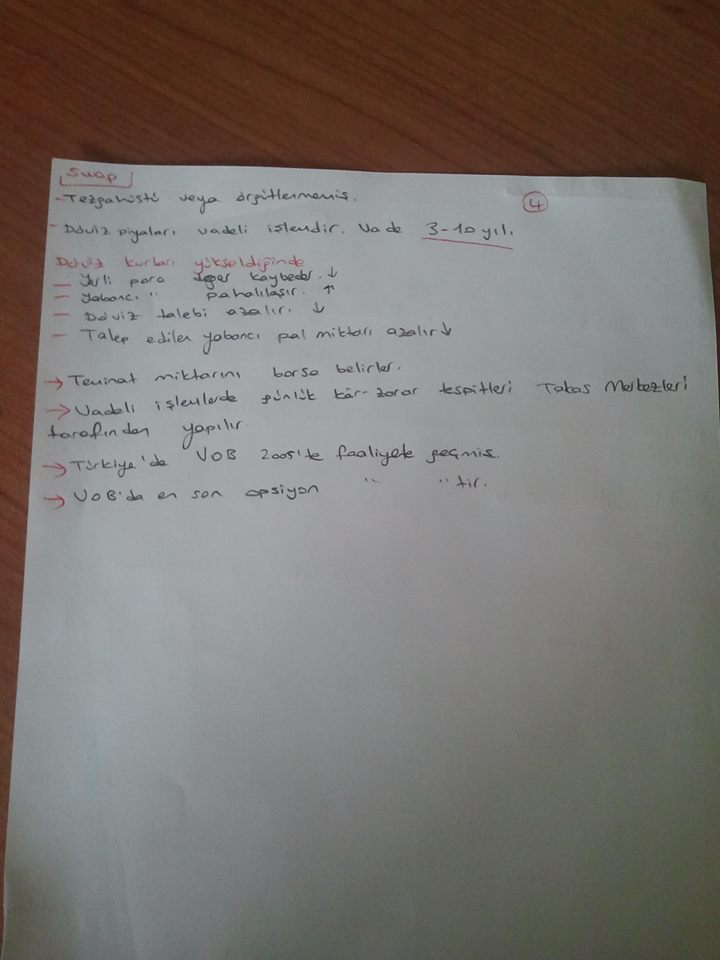 Swop
- Tezgahüstü veya örgütlenmemiş.
4
- Döviz piyaları vadeli işlemdir. Vade 3-10 yıl.
Döviz kurları yükseldiğinde
- Yerli para değer kaybeder. ↓
- Yabancı " pahalılaşır. ↑
- Döviz talebi azalır. ↓
- Talep edilen yabancı pal miktarı azalır ↓
→ Teminat miktarını borsa belirler.
→ Vadeli işlemlerde günlük kâr-zarar tespitleri Takas Merkezleri
tarafından yapılır.
→ Türkiye'de VOB 2005'te faaliyete geçmiş.
→ VOB'da en son opsiyon " " tir.